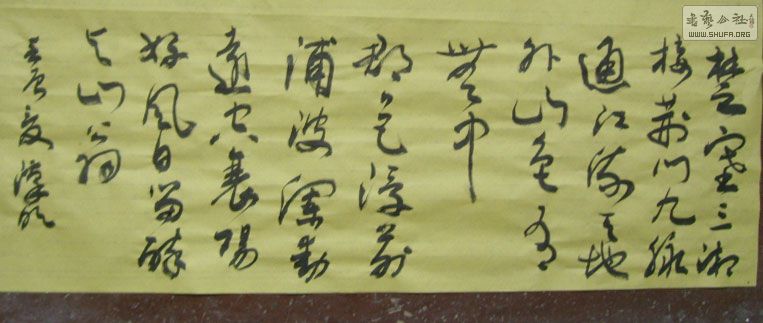 楚塞三湘
接荆门九派
通江流天地
外山色有
無中
郡邑浮前
浦波澜动
遠空襄陽
好風日留醉
与山翁
書藝公社
WWW.SHUFA.ORG